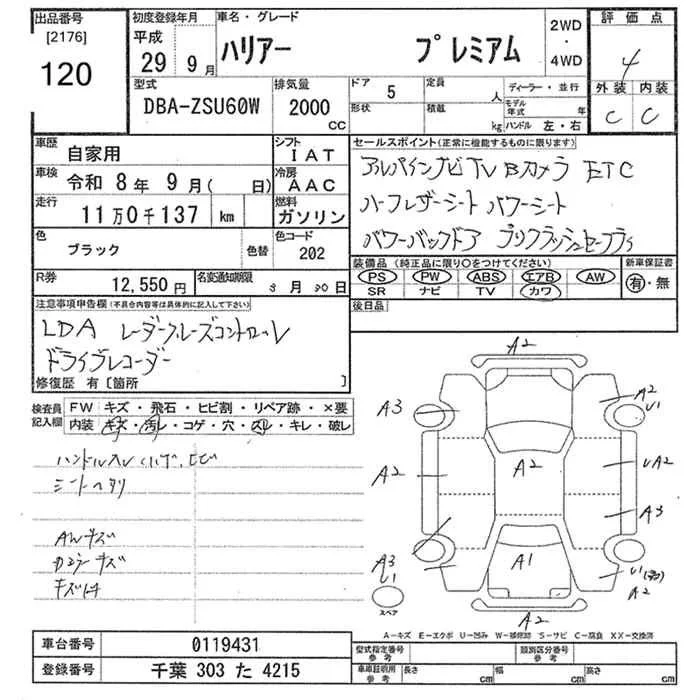 出品番号
[2176]
120
初度登録年月
平成
29 9月
車名・グレード
ハリアー プレミアム
2WD
・
4WD
評価点
4
外装 内装
C C
型式
DBA-ZSU60W
排気量
2000
CC
ドア 5
形状
定員 人
積載 kg
ディーラー・並行
モデル年式 年
ハンドル 左・右
車歴 自家用
シフト IAT
車検 令和 8年 9月( 日)
冷房 AAC
走行 11万0千137 km
燃料 ガソリン
色 ブラック 色替
色コード 202
R券 12,550円
名変通知期限 月 30日
セールスポイント(正常に機能するものに限ります)
アルパインナビ TV Bカメラ ETC
ハーフレザーシート パワーシート
パワーバックドア プリクラッシュセーフティ
装備品(純正品に限り○をつけてください)
PS PW ABS エアB AW
SR ナビ TV カワ
新車保証書
有・無
後日品
注意事項申告欄(不具合内容等は具体的に記入して下さい)
LDA レーダークルーズコントロール
ドライブレコーダー
修復歴 有〔箇所 〕
検査員記入欄
FW キズ・飛石・ヒビ割・リペア跡・×要
内装 キズ・汚レ・コゲ・穴・スレ・キレ・破レ
ハンドルスレ
シートヘタリ
AWキズ
ガラスキズ
A2
A3
A2
A3
U1
スペア
A2
A1
A2
A2
U1
UA2
A3
U1
A2
A-キズ E-エクボ U-凹み W-補修跡 S-サビ C-腐食 XX-交換済
車台番号 0119431
登録番号 千葉 303 た 4215
型式指定番号
参考
類別区分番号
参考
車車証明用
参考
長さ cm
幅 cm
高さ cm